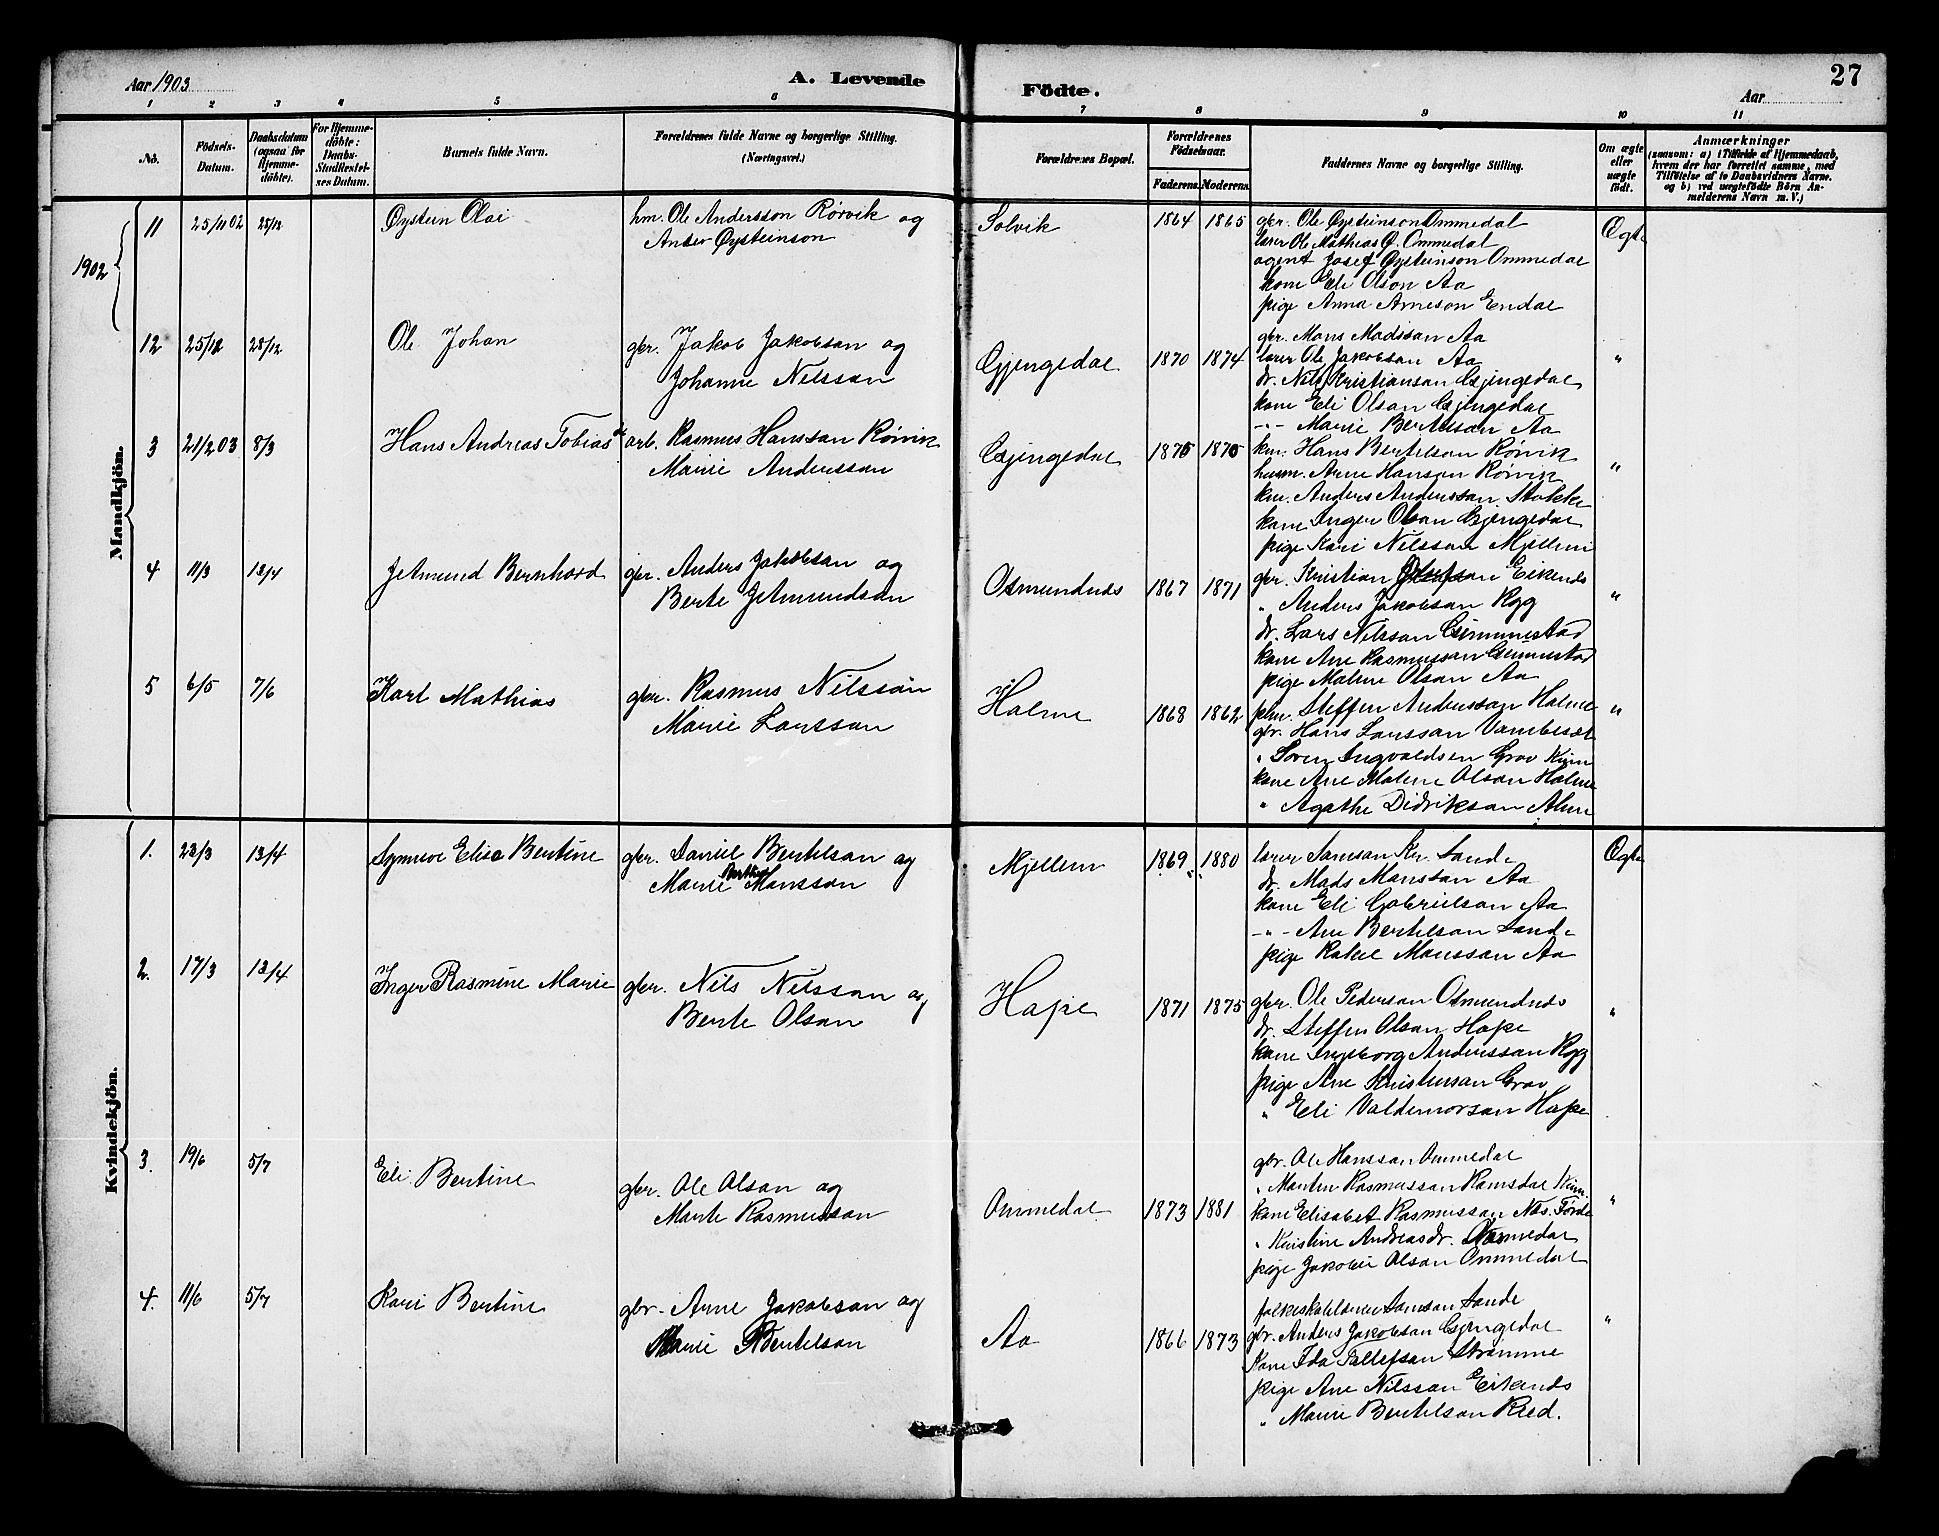 Aar 1903
A. Levende
Födte.
Aar
27
1 2 3 4 5 6 7 8 9 10 11
No.
Födsels-Datum.
Daabsdatum (ogsaa for Hjemme-döbte).
For Hjemme-döbte: Daabs-Stadfæstel-ses Datum.
Barnets fulde Navn.
Forældrenes fulde Navne og borgerlige Stilling.
(Næringsvei.)
Forældrenes Bopæl.
Forældrenes Födselsaar.
Faderens. Moderens.
Faddernes Navne og borgerlige Stilling.
Om ægte eller uægte födt.
Anmærkninger
(saasom: a) i Tilfælde af Hjemmedaab, hvem der har forrettet samme, med Tilföielse af to Daabsvidners Navne, og b) ved uægtefödte Börn Anmelderens Navn m. V.)
1902
Mandkjön.
11 25/11 02 28/12 Øystein Olai
hm. Ole Andersson Rørvik og
Øysteinson
Solvik 1864 1865
gbr. Ole Øysteinson Ommedal
lærer Ole Mathias Ø. Ommedal
agent Josef Øysteinson Ommedal
kone Eli Olson Aa
pige Anna Arneson Endal
Ægte
12 25/12 28/12 Ole Johan
gbr. Jakob Jakobsan og
Johanne Nilssan
Gjengedal 1870 1874
gbr. Mons Madssan Aa
lærer Ole Jakobsan Aa
dr. Nils Kristiansan Gjengedal
kone Eli Olsan Gjengedal
-"- Marie Bertelsan Aa
"
3 21/2 03 8/3 Hans Andreas Tobias
arb. Rasmus Hanssan Rørvik
Marie Anderssan
Gjengedal 1875 1875
km. Hans Bertelsan Rørvik
husm. Arne Hansan Rørvik
km. Anders Anderssan Stokke
kone Inger Olsan Gjengedal
pige Kari Nilssan Mjellem
"
4 11/3 13/4 Jetmund Bernhard
gbr. Anders Jakobsan og
Berte Jetmundsan
Osmundnes 1867 1871
gbr. Kristian Eikenes
" Anders Jakobsan Rygg
dr. Lars Nilssan Gimmestad
kone Ane Rasmussan Gimmestad
pige Malene Olsan Aa
"
5 6/5 7/6 Karl Mathias
gbr. Rasmus Nilssan
Marie Larssan
Holme 1868 1862
plm. Steffen Anderssan Holme
gbr. Hans Larssan Vambeset
" Søren Ingvaldsen Grov Kinn
kone Ane Malene Olsan Holme
" Agathe Didriksan Alme
"
Kvindekjön.
1. 23/3 13/4 Synneve Elise Bertine
gbr. Daniel Bertelsan og
Marie Bertine Monssan
Mjellem 1869 1880
lærer Samsan Kr. Sande
dr. Mads Monssan Aa
kone Eli Gabrielsan Aa
-"- Ane Bertelsan Sande
pige Rakel Monssan Aa
Ægte
2. 17/3 13/4 Inger Rasmine Marie
gbr. Nils Nilssan og
Berte Olsan
Hope 1871 1875
gbr. Ole Pedersan Osmundnes
dr. Steffen Olsan Hope
kone Ingeborg Anderssan Rygg
pige Ane Kristensan Grov
" Eli Valdemorsan Hope
"
3. 19/6 5/7 Eli Bertine
gbr. Ole Olsan og
Marte Rasmussan
Ommedal 1873 1881
gbr. Ole Hanssan Ommedal
" Marten Rasmussan Ramsdal Kinn
kone Elisabet Rasmussan Nes. Førde
" Kristine Andreasdr. Ommedal
pige Jakobie Olsan Ommedal
"
4. 11/6 5/7 Kari Bertine
gbr. Arne Jakobsan og
Marie Bertelsan
Aa 1866 1873
folkeskolelærer Samsan Sande
gbr. Anders Jakobsan Gjengedal
Kone Ida Tollefsan Strømme
pige Ane Nilssan Eikenes
" Marie Bertelsan Reed.
"